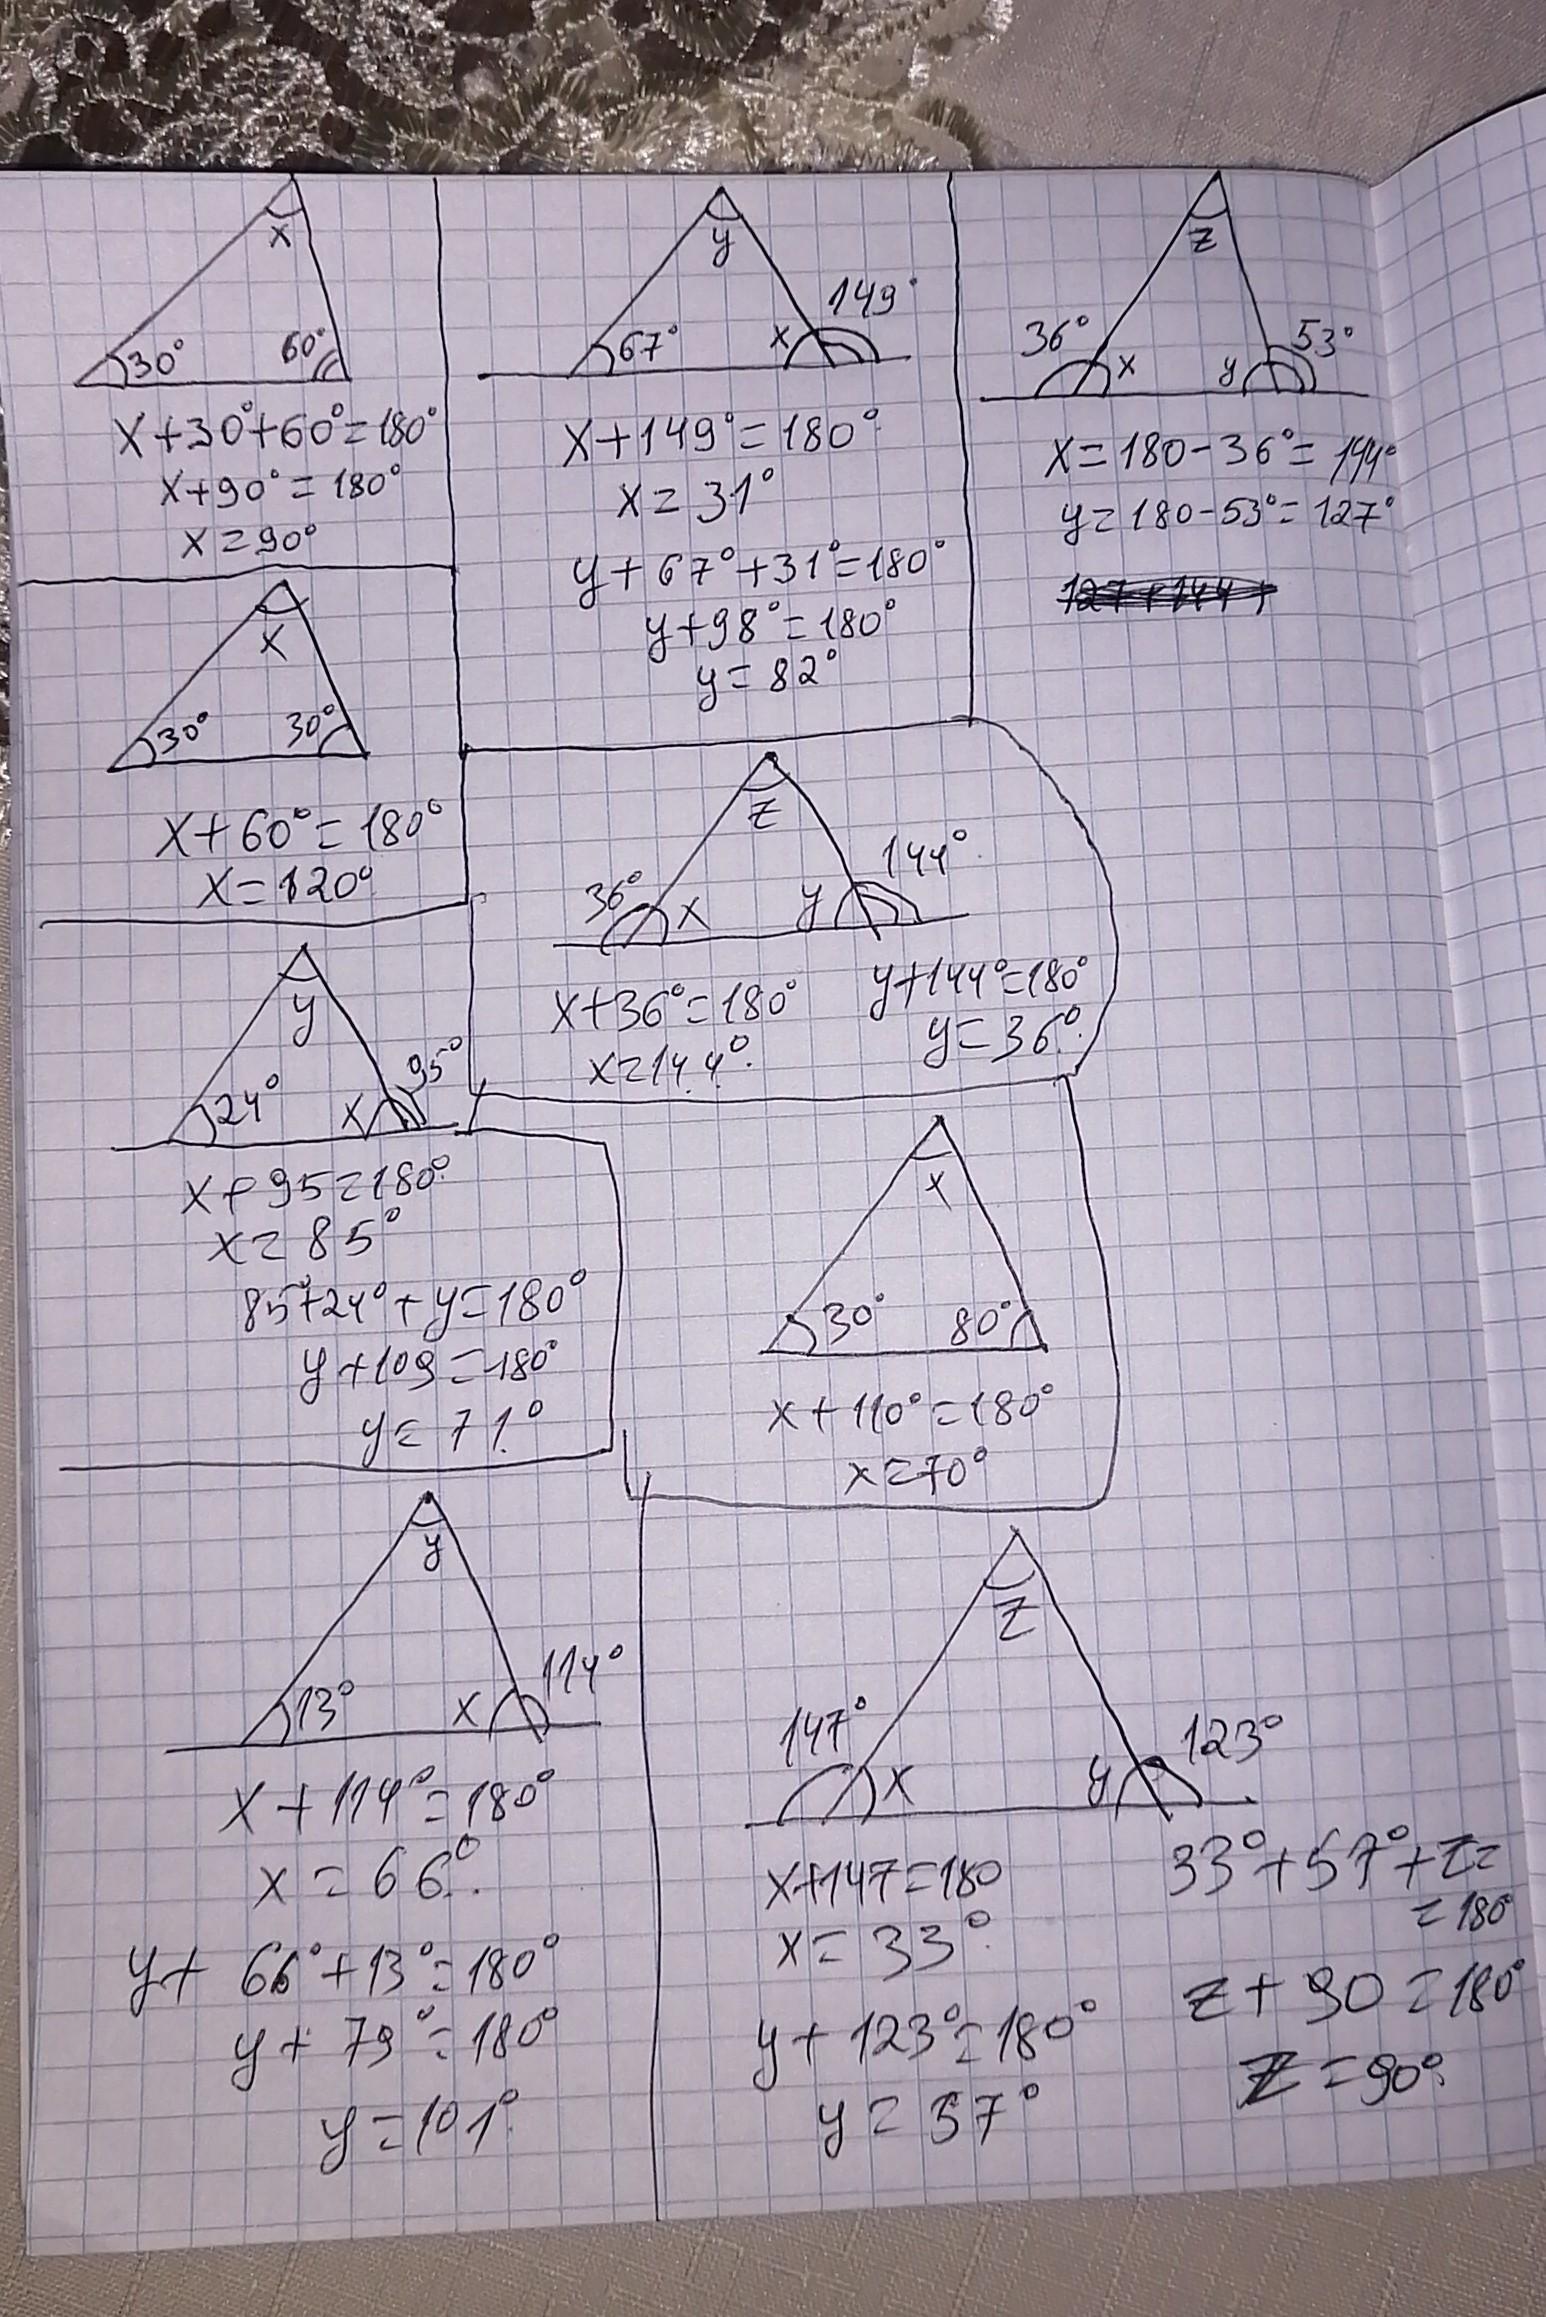 x
30° 60°
x+30°+60°=180°
x+90°=180°
x=90°
y
149°
67° x
x+149°=180°
x=31°
y+67°+31°=180°
y+98°=180°
y=82°
z
36° 53°
x y
x=180-36°=144°
y=180-53°=127°
x
30° 30°
x+60°=180°
x=120°
z
144°
36° x y
x+36°=180°
x=144°
y+144°=180°
y=36°
y
95°
24° x
x+95=180°
x=85°
85°+24°+y=180°
y+109=180°
y=71°
x
30° 80°
x+110°=180°
x=70°
y
114°
13° x
x+114°=180°
x=66°
y+66°+13°=180°
y+79°=180°
y=101°
z
147° 123°
x y
x+147=180
x=33°
y+123°=180°
y=57°
33°+57°+z=
=180°
z+90=180°
z=90°